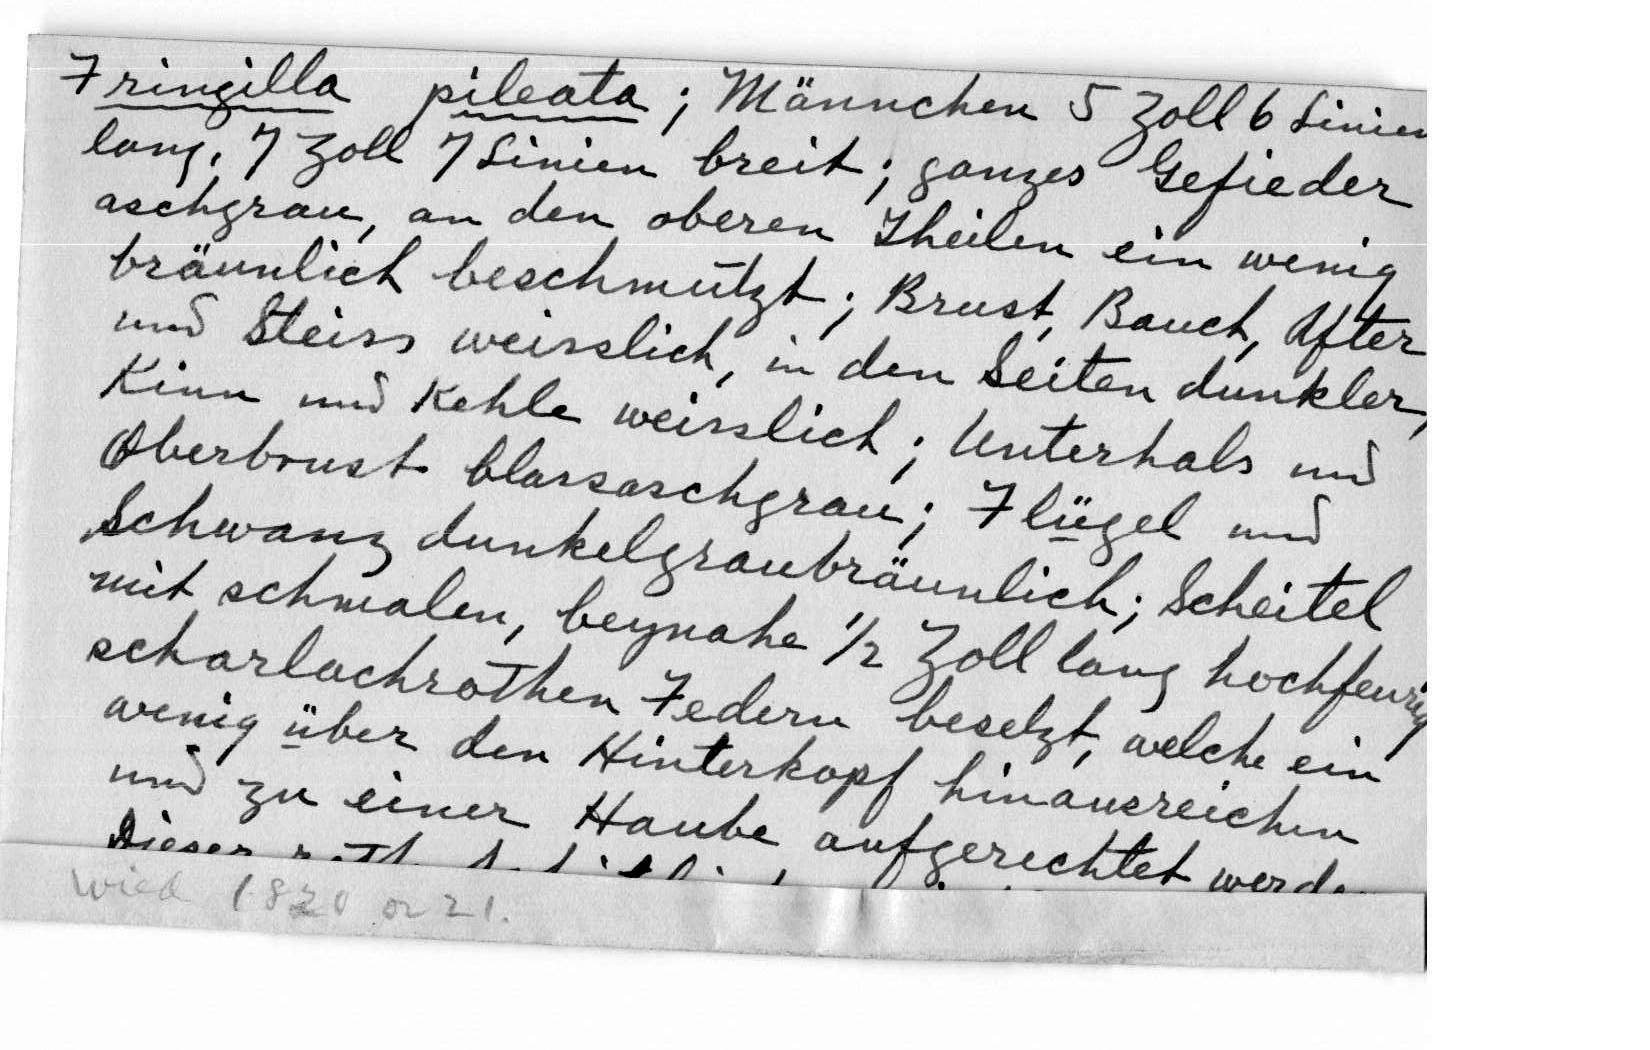 Fringilla pileata; Männchen 5 Zoll 6 Linien
lang, 7 Zoll 7 Linien breit; ganzes Gefieder
aschgrau, an den oberen Theilen ein wenig
bräunlich beschmutzt; Brust, Bauch, After
und Steiss weisslich, in den Seiten dunkler,
Kinn und Kehle weisslich; Unterhals und
Oberbrust blassaschgrau; Flügel und
Schwanz dunkelgraubräunlich; Scheitel
mit schmalen, beynahe 1/2 Zoll lang hochfeurig
scharlachrothen Federn besetzt, welche ein
wenig über den Hinterkopf hinausreichen
und zu einer Haube aufgerechtet werden
Dieser
Wied 1820 or 21.